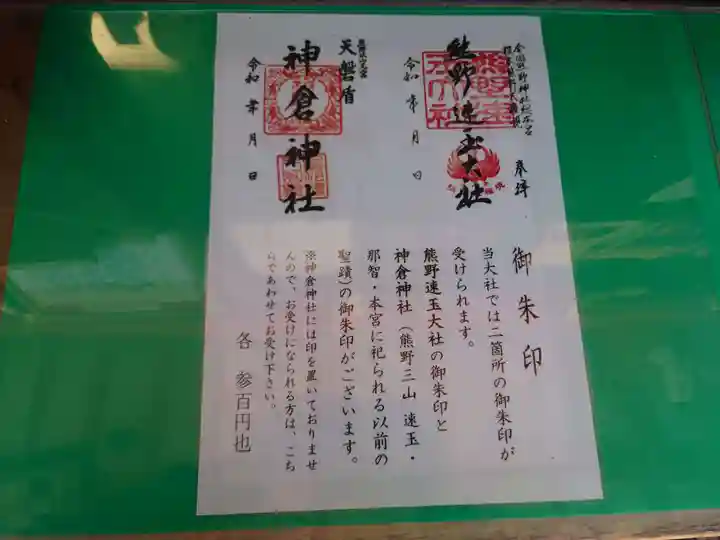 全国熊野神社総本宮
奉拝
熊野速玉大社
令和 年 月 日
天磐盾
神倉神社
令和 年 月 日
御朱印
当大社では二箇所の御朱印が
受けられます。
熊野速玉大社の御朱印と
神倉神社(熊野三山 速玉・
那智・本宮に祀られる以前の
聖蹟)の御朱印がございます。
※神倉神社には印を置いておりませ
んので、お受けになられる方は、こち
らであわせてお受け下さい。
各 参百円也